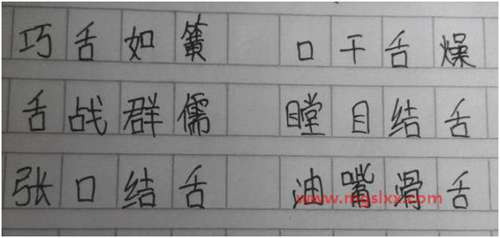 巧舌如簧 口干舌燥
舌战群儒 瞠目结舌
张口结舌 油嘴滑舌